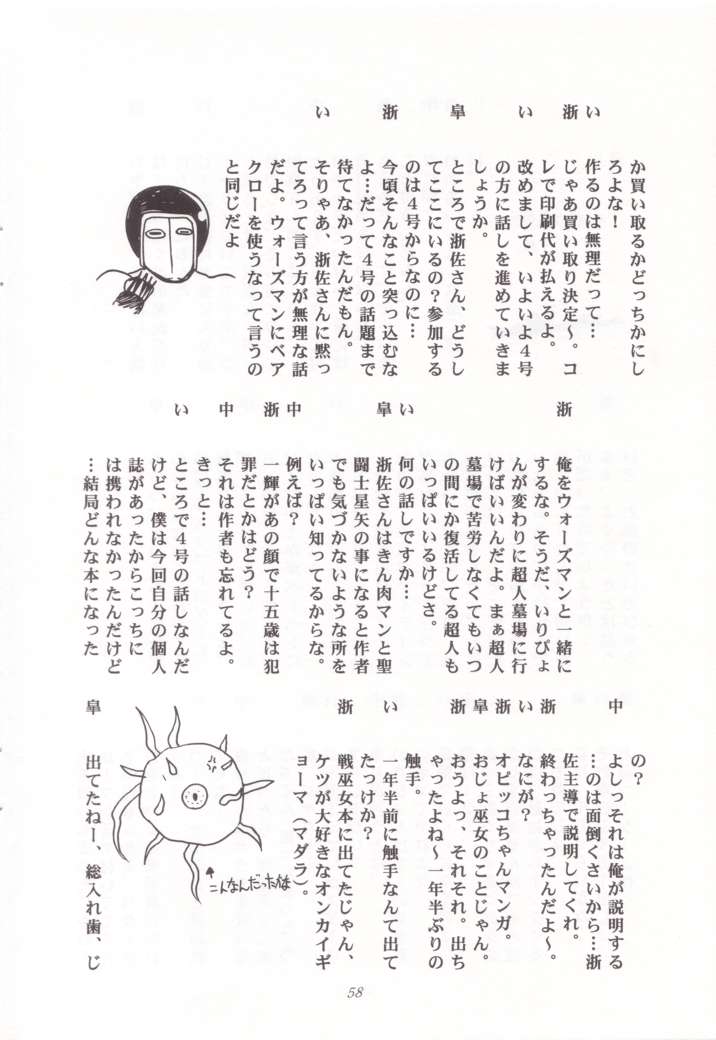 か買い取るかどっちかにし
ろよな！
い 作るのは無理だって…
浙 じゃあ買い取り決定～。コ
レで印刷代が払えるよ。
い 改めまして、いよいよ４号
の方に話しを進めていきま
しょうか。
皐 ところで浙佐さん、どうし
てここにいるの？参加する
のは４号からなのに…
浙 今頃そんなこと突っ込むな
よ…だって４号の話題まで
待てなかったんだもん。
い そりゃあ、浙佐さんに黙っ
てろって言う方が無理な話
だよ。ウォーズマンにベア
クローを使うなって言うの
と同じだよ
浙 俺をウォーズマンと一緒に
するな。そうだ、いりぴょ
んが変わりに超人墓場に行
けばいいんだよ。まぁ超人
墓場で苦労しなくてもいつ
の間にか復活してる超人も
いっぱいいるけどさ。
い 何の話しですか…
皐 浙佐さんはきん肉マンと聖
闘士星矢の事になると作者
でも気づかないような所を
いっぱい知ってるからな。
中 例えば？
浙 一輝があの顔で十五歳は犯
罪だとかはどう？
中 それは作者も忘れてるよ。
きっと…
い ところで４号の話しなんだ
けど、僕は今回自分の個人
誌があったからこっちに
は携われなかったんだけど
…結局どんな本になった
の？
中 よしっそれは俺が説明する
…のは面倒くさいから…浙
佐主導で説明してくれ。
浙 終わっちゃったんだよ～。
い なにが？
浙 オビッコちゃんマンガ。
皐 おじょ巫女のことじゃん。
浙 おうよっ、それそれ。出ち
ゃったよね～一年半ぶりの
触手。
い 一年半前に触手なんて出て
たっけか？
浙 戦巫女本に出てたじゃん、
ケツが大好きなオンカイギ
ョーマ（マダラ）。
こんなんだったかな
皐 出てたねー、総入れ歯、じ
58